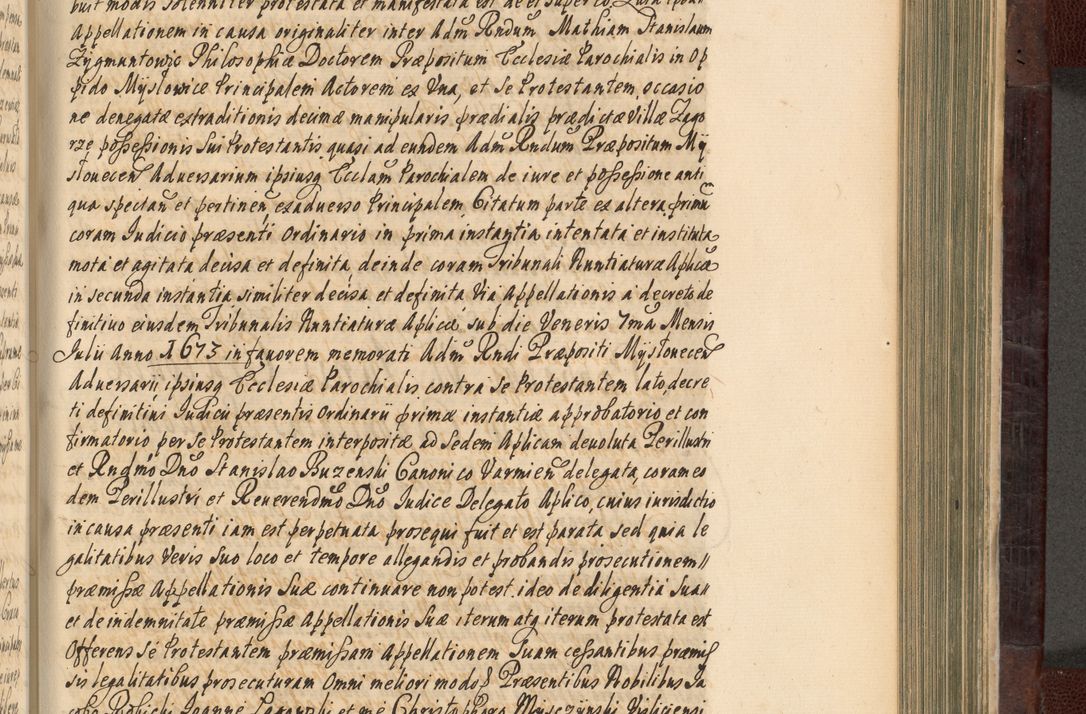 buit modis solenniter protestata et manifestata est de et super eo, Quia ipsa
Appellationem in causa originaliter inter Adm Rndum Mathiam Stanislaum
Zygmuntowic Philosophiæ Doctorem Præpositum Ecclesiæ Parochialis in Op
pido Myslowice Principalem Actorem ex Una, et se Protestantem, occasio
ne denegatæ extraditionis decimæ manipularis prædialis prædictæ Villæ Zago
rze possessionis Sui Protestantis quasi ad eundem Adm Rndum Præpositum My
slouecen Adversarium ipsiusq Ecclam Parochialem de iure et possessione anti
qua spectan et pertinen, ex adverso Principalem Citatum parte ex altera, primu
coram Iudicio præsenti Ordinario in prima instantia intentata et instituta
mota et agitata decisa et definita, deinde coram Tribunali Nuntiaturæ Aplicæ
in secunda instantia similiter decisa et definita Via Appellationis a decreto de
finitivo eiusdem Tribunalis Nuntiaturæ Aplicæ, sub die Veneris 7ma Mensis
Julii Anno 1673 in favorem memorati Adm Rndi Præpositi Myslouecen
Adversarij ipsiusq Ecclesiæ Parochialis contra se Protestantem lato, decre
ti definitivi Iudicii præsentis Ordinarii primæ instantiæ approbatorio et con
firmatorio per se Protestantem interpositæ ad Sedem Aplicam devoluta Perillustri
et Rndmo Dno Stanislao Buzenski Canonico Varmien delegata, coram eo
dem Perillustri et Reverendmo Dno Iudice Delegato Aplico, cuius iurisdictio
in causa præsenti iam est perpetuata prosequi fuit et est parata sed quia le
galitatibus Veris suo loco et tempore allegandis et probandis prosecutionem
præmissæ Appellationis Suæ continuare non potest, ideo de diligentia Sua
et de indemnitate præmissæ Appellationis Suæ iterum atq iterum protestata est
Offerens se Protestantem præmissam Appellationem Suam cessantibus præmis
sis legalitatibus prosecuturam Omni meliori modo Præsentibus Nobilibus Ia
cobo Joanne et me Christophoro Visliciensi